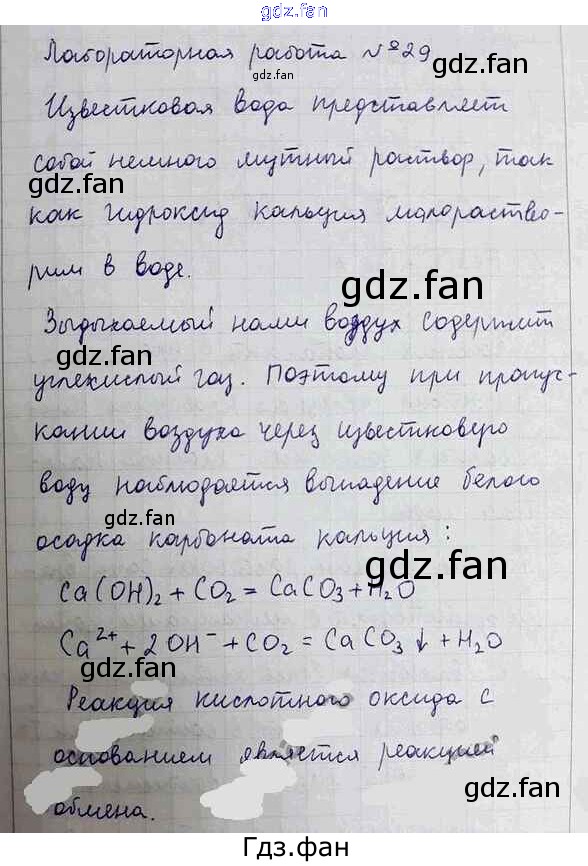 gdz.fan
Лабораторная работа №29
gdz.fan
gdz.fan
Известковая вода представляет
собой немного мутный раствор, так
gdz.fan
gdz.fan
как гидроксид кальция малораство-
рим в воде.
gdz.fan
Выдыхаемый нами воздух содержит
gdz.fan
углекислый газ. Поэтому при пропус-
кании воздуха через известковую
воду наблюдается выпадение белого
gdz.fan
осадка карбоната кальция:
gdz.fan
Ca(OH)₂ + CO₂ = CaCO₃ + H₂O
Ca²⁺ + 2OH⁻ + CO₂ = CaCO₃↓ + H₂O
gdz.fan
Реакция кислотного оксида с
основанием является реакцией
gdz.fan
gdz.fan
обмена.
Гдз.фан